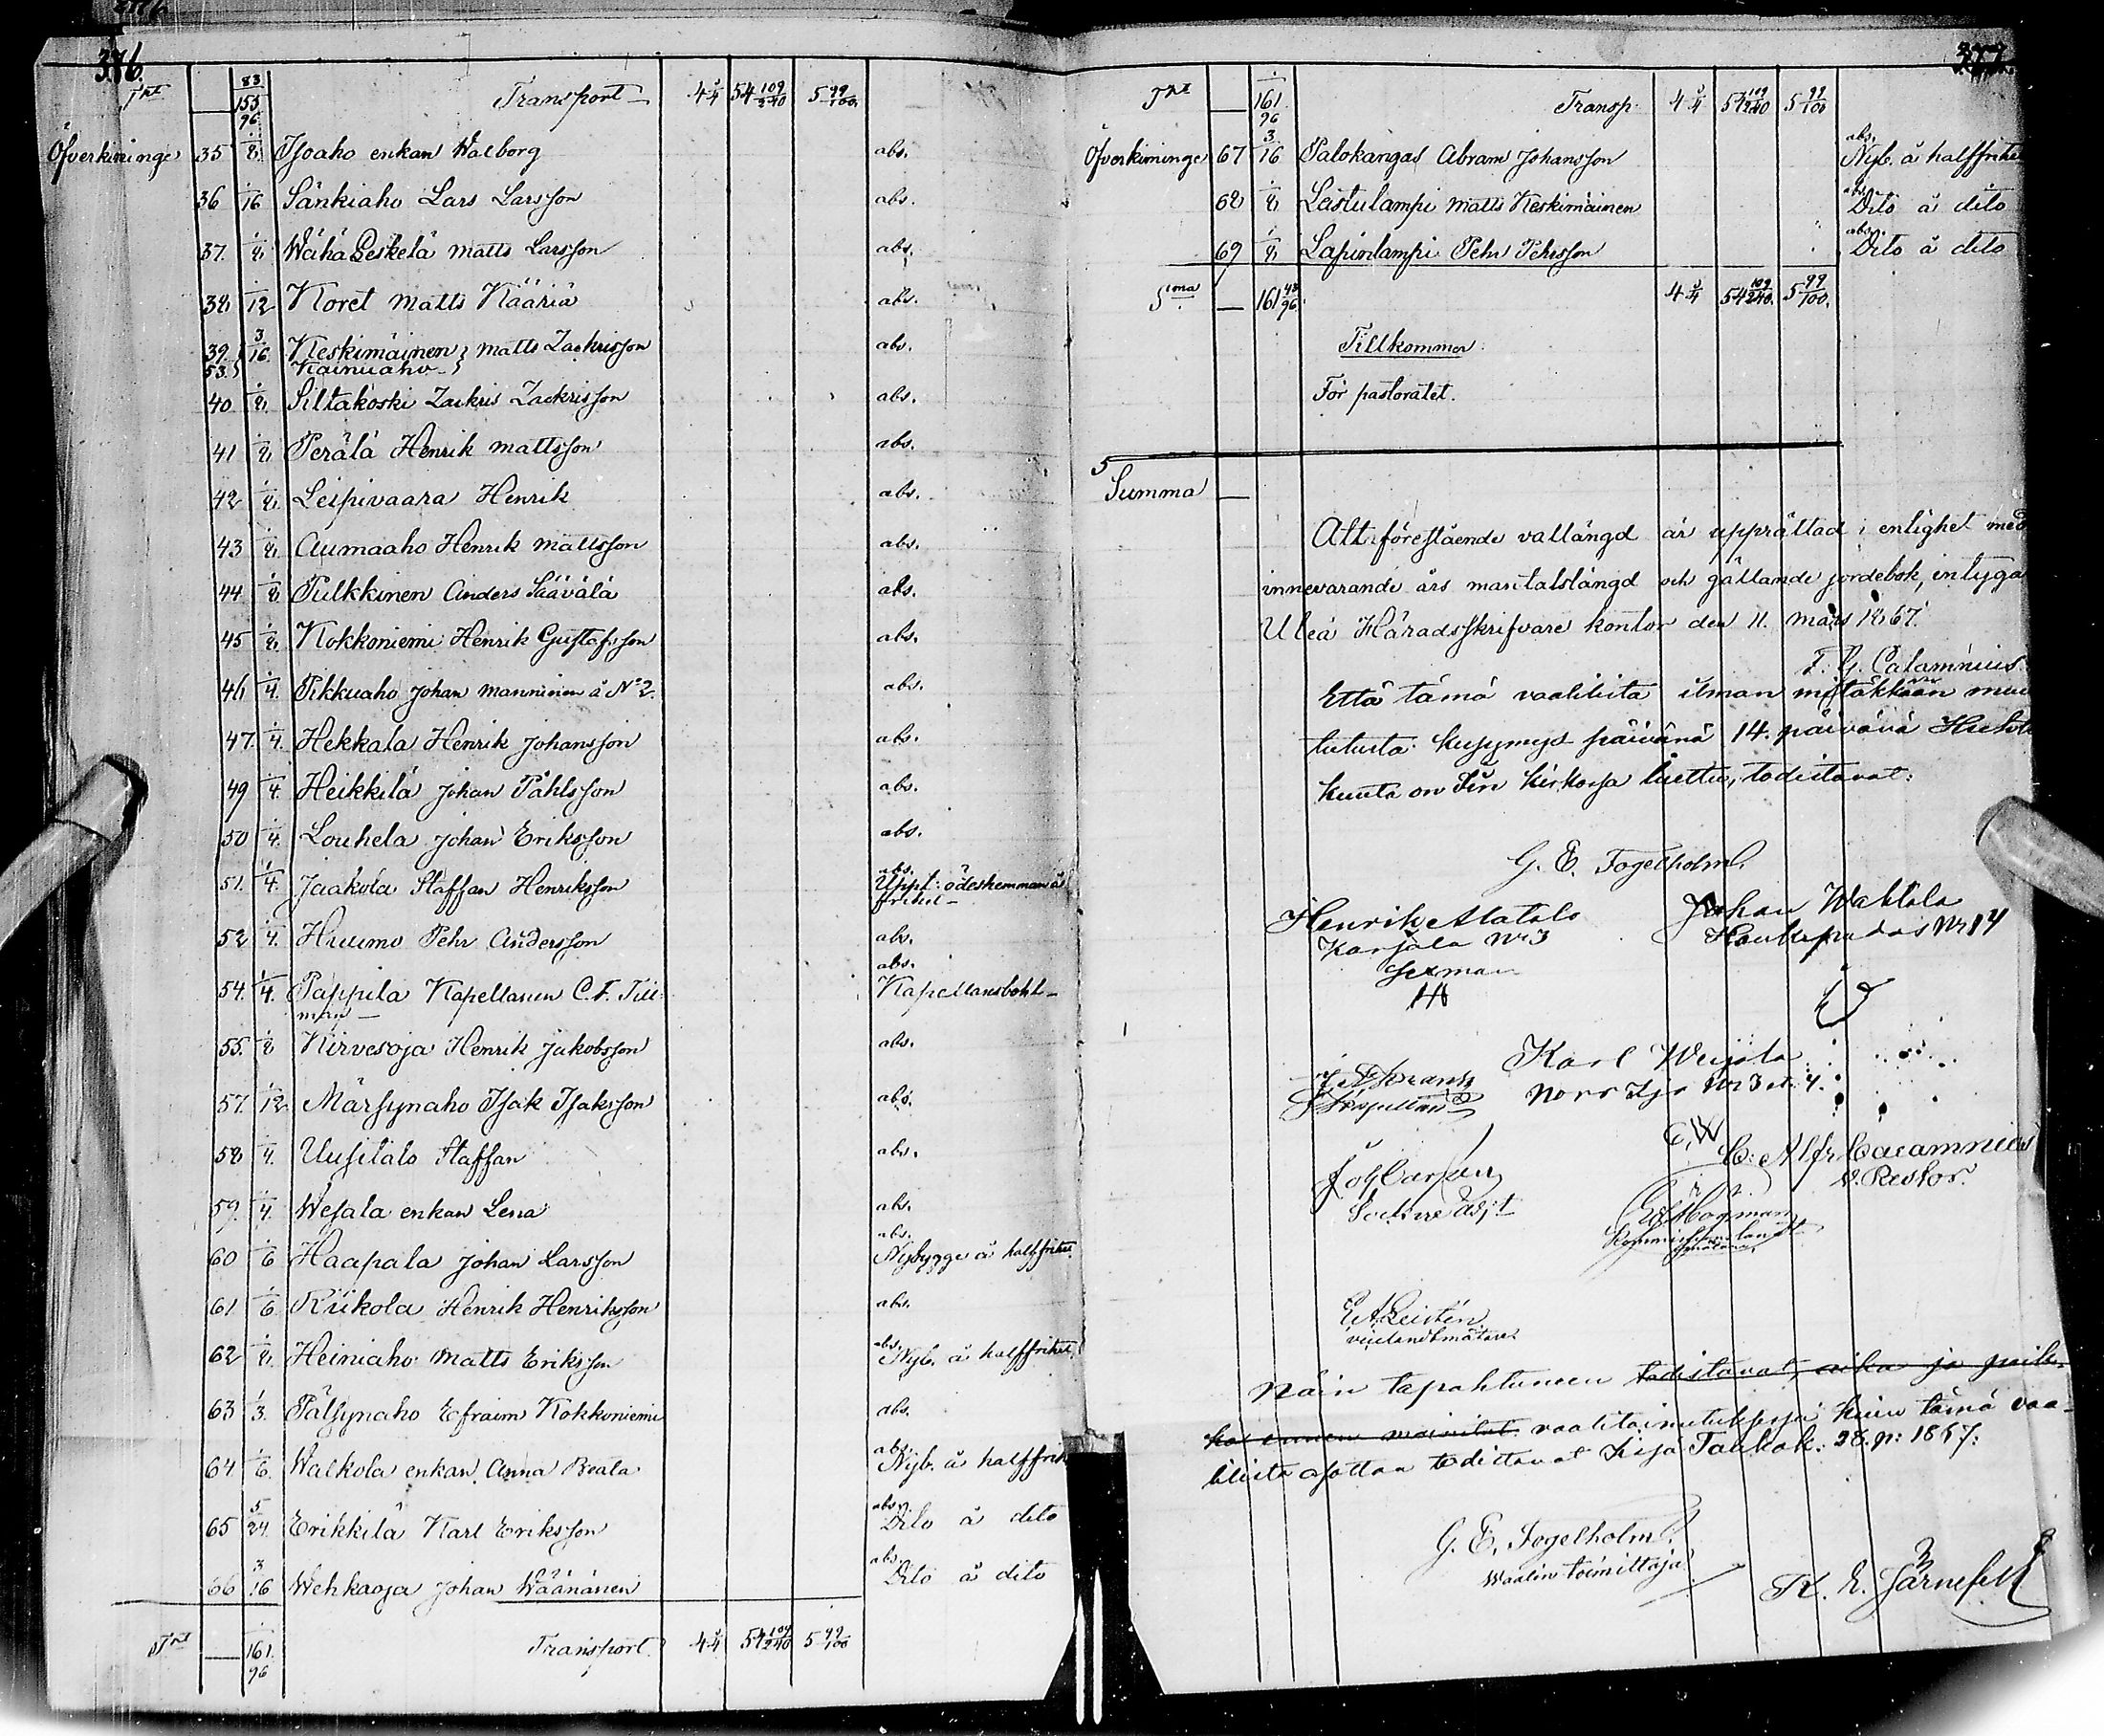 376.
Trt — 83 155/96 Transport — 4 3/4 54 109/240 5 99/100
Öfverkiminge 35 1/8 Isoaho enkan Walborg abs.
36 1/16 Sänkiaho Lars Larsson abs.
37. 1/8 Wähä Geskelä Matts Larsson abs.
38 1/12 Koret Matts Kääriä abs.
39. 3/16 Keskimäinen Matts Zachrisson abs.
53. Kainuaho
40 1/8 Siltakoski Zackris Zackrisson abs.
41 1/8 Perälä Henrik Mattsson abs.
42 1/8 Leipivaara Henrik abs.
43 1/8 Aumaaho Henrik Mattsson abs.
44 1/8 Pulkkinen Anders Säävälä abs.
45 1/8 Kokkoniemi Henrik Gustafsson abs.
46 1/4 Pikkuaho Johan Manninen å No 2. abs.
47. 1/4 Hekkala Henrik Johansson abs.
49 1/4 Heikkilä Johan Påhlsson abs.
50 1/4 Louhela Johan Eriksson abs.
51. 1/4 Jaakola Staffan Henriksson abs. Uppt. ödeshemman å frihet —
52 1/4 Huumo Pehr Andersson abs.
54. 1/4 Pappila Kapellanen C. F. Till- abs. Kapellansbohl —
man —
55. 1/8 Kirvesoja Henrik Jakobsson abs.
57. 1/12 Märsynaho Isak Isaksson abs.
58 1/4 Uusitalo Staffan abs.
59. 1/4 Wesala enkan Lena abs.
60 1/6 Haapala Johan Larsson abs. Nybygge å halffrihet.
61 1/6 Riikola Henrik Henriksson abs.
62 1/8 Heiniaho Matts Eriksson abs. Nyb. å halffrihet.
63 1/3 Pälsynaho Efraim Kokkoniemi abs.
64 1/6 Walkola enkan Anna Beata abs. Nyb. å halffrih
65 5/24 Erikkilä Karl Eriksson abs. Dito å dito
66 3/16 Wehkaoja Johan Wäänänen abs. Dito å dito
Trt — 161/96 Transport. 4 3/4 54 109/240 5 99/100
377.
Trt — 161/96 Transp. 4 3/4 54 109/240 5 99/100
Öfverkiminge 67 3/16 Palokangas Abram Johansson abs. Nyb. å halffrihe
68 1/8 Lastulampi Matts Keskimäinen abs. Dito å dito
69 1/8 Lapinlampi Pehr Pehrsson abs. Dito å dito
Sma — 161 48/96 4 3/4 54 109/240. 5 99/100.
Tillkommer
För pastoratet.
Summa —
Att förestående vallängd är upprättad i enlighet med
innevarande års mantalslängd och gällande jordebok, intyga
Uleå Häradsskrifvare kontor den 11. mars 1867.
F. G. Calamnius
Että tämä vaaliliita ilman mitäkkään muu
tutusta kysymys päivänä 14. päivänä Huhti
kuuta on Iin kirkossa luettu, todistavat:
G. E. Fogelholm.
Henrik Alatalo Johan Wattala
Karjala No 3 Haukipudas No 14
Sexman
Karl Weijola
Kapellan Norr Ijo No 3 et 4.
C. Alfr. Calamnius
V. Rektor.
E. A. Leistén
vicelandtmätare
Näin tapahtuneen todistavat, aika ja paik-
ka ennen mainitut. vaalitoimituksessa kuin tämä vaa-
liliista osottaa todistavat Iissä Toukok. 28. p: 1867.
G. E. Fogelholm.
Waalin toimittaja.
K. E. Järnefelt